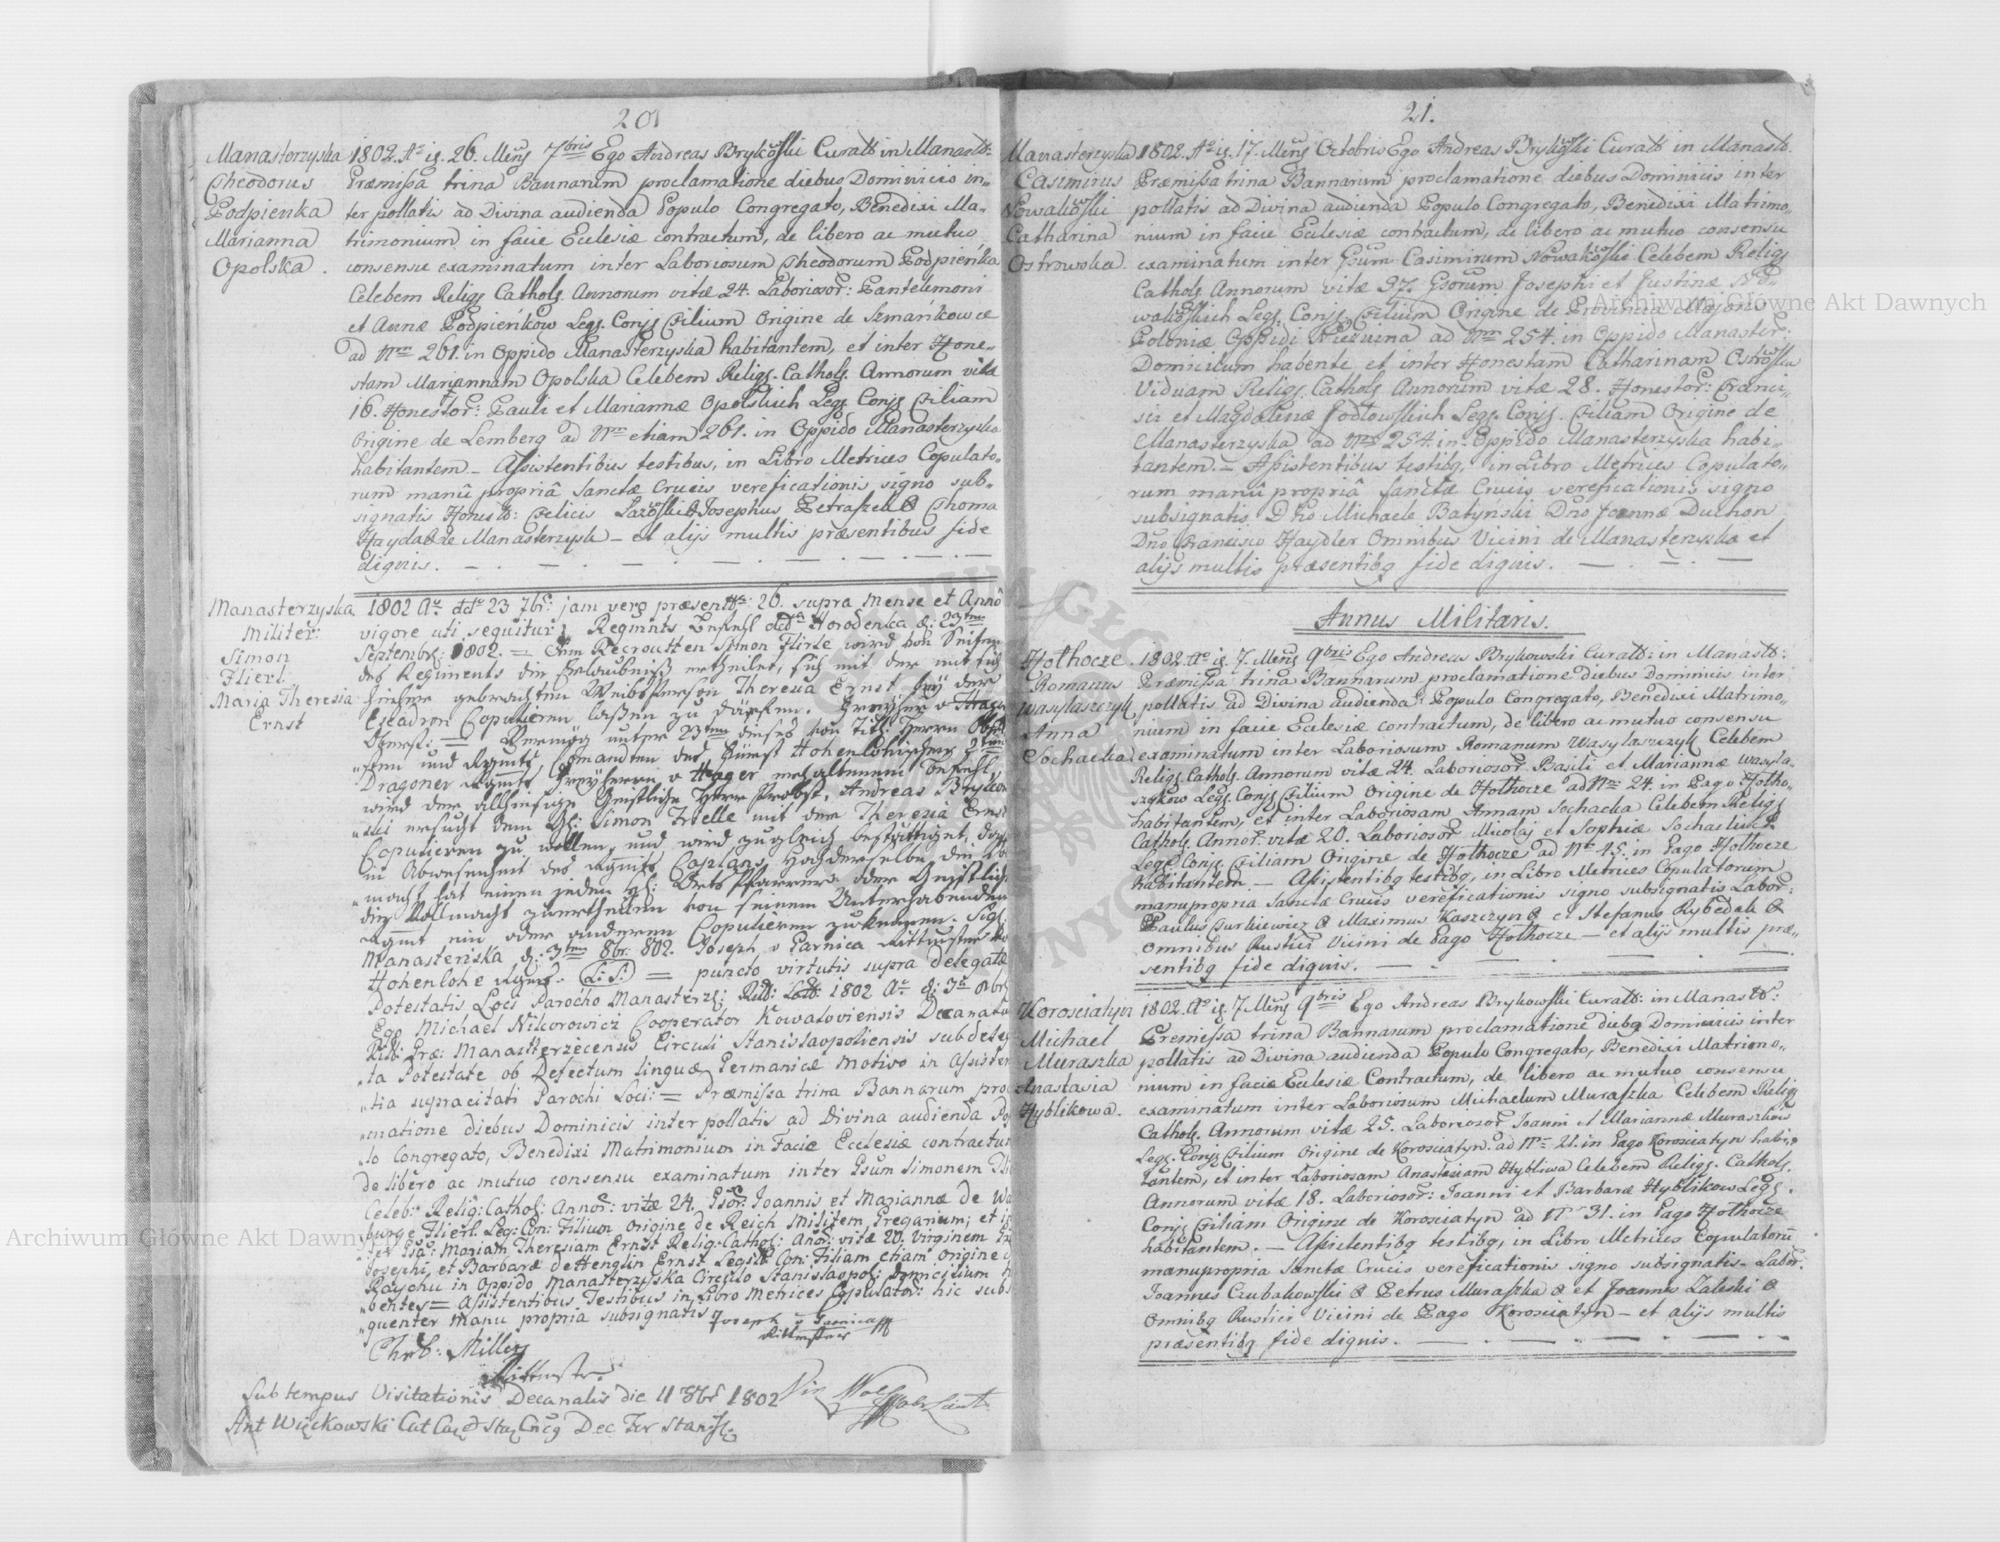 201
Manasterzyska
Theodorus
Podpienka
Marianna
Opolska.
1802. Ao is. 26. Mens 7bris Ego Andreas Brykowski Curatt in Manastt:
Præmissa trina Bannarum proclamatione diebus Dominicis in„
ter pollatis ad Divina audienda Populo Congregato, Benedixi Ma„
trimonium in facie Ecclesiæ contractum, de libero ac mutuo
consensu examinatum inter Laboriosum Theodorum Podpienka
Celebem Religs Cathols Annorum vitæ 24. Laborosor: Pantelimoni
et Annæ Podpienkow Legs. Conjs Filium Origine de Szmańkowce
ad Nrm 261. in Oppido Manasterzyska habitantem, et inter Hone„
stam Mariannam Opolska Celebem Religs. Cathols. Annorum vitæ
16. Honestor: Pauli et Mariannæ Opolskich Legs Conjs Filiam
Origine de Lemberg ad Nrm etiam 261. in Oppido Manasterzyska
habitantem _ Assistentibus testibus, in Libro Metrices Copulato„
rum manû propriâ Sanctæ Crucis vereficationis signo sub„
signatis Honestt: Felicis Josephus Petraszek Thoma
Hayda de Manasterzysk _ et alijs multis præsentibus fide
dignis.
Manasterzyska
Militer:
Simon
Flierl.
Maria Theresia
Ernst
1802 Ao ddo 23 7br: jam vero præsentt: 26. supra Mense et Anno
vigore uti sequitur: Regmnts Befehl ddo Horodenka d: 23ten
Septembs: 1802. = Dem Recroutten Simon Flirle wird von Seiten
des Regiments die Erlaubniß ertheilet, sich mit der mit sich
hieher gebrachten Weibsperson Theresia Ernst bey der
Escadron Copuliren laßen zu dürfen. Freyherr v Hager
Oberst: = Vermög unter 23ten dieses von Titt: Herrn Ober
„sten und Rgmts Comandten des Fürst Hohenlohischen 2ten
Dragoner Rgmts Freyherrn v Hager erhaltenem Befehl,
wird der allhiesige Geistliche Herr Probst, Andreas Brykow
„ski ersucht dem Gl: Simon Frelle mit der Theresia Ernst
Copuliren zu wollen, und wird zugleich bestättiget, daß
in Abwesenheit des Rgmts Caplans, Hochderselbe die Voll
„macht hat einen jeden Gl: Orts Pfarrer oder Geistlich
die Vollmacht zu ertheilen von seinem Unterhabenden
Rgmt ein oder anderen Copuliren zu können. Sigl:
Manasterska d: 3ten 8br. 802. Joseph v Parnica Rittmster v
Hohenlohe Rgmt. L:S: = puncto virtutis supra delegatæ
Potestatis Loci Parocho Manasterz: 1802 Ao d: 3a 8br
Ego Michael Nikorowicz Cooperator Kowaloviensis Decanatu
Manastterzecensis Circuli Stanislavpoliensis subdeleg
„ta Potestate ob Defectum linguæ Germanicæ Motivo in assisten
„tia supracitati Parochi Loci: = Præmissa trina Bannarum procl
„matione diebus Dominicis inter pollatis ad Divina audienda Pop
„lo Congregato, Benedixi Matrimonium in Facie Ecclesiæ contractum
de libero ac mutuo consensu examinatum inter Gsum Simonem Fli
Celeb: Relig: Cathol: Annor: vitæ 24. Gsor: Joannis et Mariannæ de Wa
burge Flierl Leg: Con: Filium Origine de Reich Militem Gregarium; et in
ter Gsa: Mariam Theresiam Ernst Relig: Cathol: Anor: vitæ 20. Virginem
Josephi, et Barbaræ de Henglin Ernst Legit Con: Filiam etiam Origine
in Oppido Manasterzyska Circulo Stanislavpol: Domicilium h
„bentes = Assistentibus Testibus in Libro Metrices Copulator: hic subs
„quenter Manu propria subsignatis
Joseph v Parnica
Rittmster
Chrb: Miller
Sub tempus Visitationis Decanalis die 11 1802
Ant Więckowski Cat Dec For Stanisl:
21.
Manasterzyska
Casimirus
Nowakowski
Catharina
Ostrowska.
1802. Ao is. 17. Mens Octobris Ego Andreas Brykowski Curatt in Manastt.
Præmissa trina Bannarum proclamatione diebus Dominicis inter
pollatis ad Divina audienda Populo Congregato, Benedixi Matrimo„
nium in facie Ecclesiæ contractum, de libero ac mutuo consensu
examinatum inter Gsum Casimirum Nowakowski Celebem Religs
Cathols Annorum vitæ 37. Gsorum Josephi et Justinæ No„
wakowskich Legs. Conjs Filium Origine de Provincia Majoris
Poloniæ Oppidi ad Nrm 254. in Oppido Manaster:
Domicilum habente et inter Honestam Catharinam Ostrowska
Viduam Religs Cathols Annorum vitæ 28. Honestor: Franci„
sci et Magdalenæ Godlowskich Legs. Conjs. Filiam Origine de
Manasterzyska ad Nrm 254. in Oppido Manasterzyska habi„
tantem. _ Assistentibus testibq, in Libro Metrices Copulato„
rum manû propriâ Sanctæ Crucis vereficationis signo
subsignatis Dno Michaele Batynski Dno Joannæ Duchon
Dno Francisco Haydler Omnibus Vicini de Manasterzyska et
alijs multis præsentibq fide dignis.
Annus Militaris.
Hothocze.
Romanus
Wasylaszczyk
Anna
Sochacka
1802. Ao is. 7. Mens 9bris Ego Andreas Brykowski Curatt: in Manastt:
Præmissa trina Bannarum, proclamatione diebus Dominicis inter
pollatis ad Divina audienda Populo Congregato, Benedixi Matrimo„
nium in facie Ecclesiæ contractum, de libero ac mutuo consensu
examinatum inter Laboriosum Romanum Wasylaszczyk Celebem
Religs. Cathols. Annorum vitæ 24. Laboriosor Basili et Mariannæ Wasyla„
szczkow Legs. Conjs Filium Origine de Hothocze ad Nrm 24. in Pago Hotho„
habitantem, et inter Laboriosam Annam Sochacka Celebem Religs
Cathols. Annor: vitæ 20. Laboriosor Micolaj et Sophiæ Sochackich
Legs Conjs. Filiam Origine de Hothocze ad Nrm 15. in Pago Hothocze
habitantem. _ Assistentibq testibq, in Libro Metrices Copulatorum
manupropria Sanctæ Crucis vereficationis signo subsignatis Labor:
Paulus Curkiewicz & Maximus Kaszczyn & et Stefanus Rybedak &
Omnibus Rustici Vicini de Pago Hothocze _ et alijs multis præ„
sentibq fide dignis.
Korosciatyn
Michael
Muraszka
Anastasia
Hyblikowa.
1802. Ao is. 7. Mens 9bris Ego Andreas Brykowski Curatt: in Manastt:
Premissa trina Bannarum proclamatione diebq Dominicis inter
pollatis ad Divina audienda Populo Congregato, Benedixi Matrimo„
nium in faciæ Ecclesiæ Contractum, de libero ac mutuo consensu
examinatum inter Laboriosum Michaelum Muraszka Celebem Religs
Cathols. Annorum vitæ 25. Laboriosor Joanni et Mariannæ Muraszkow
Legs. Conjs Filium Origine de Korosciatyn. ad Nrm 21. in Pago Korosciatyn habi„
tantem, et inter Laboriosam Anastasiam Hyblikwa Celebem Religs. Cathols.
Annorum vitæ 18. Laboriosor: Joanni et Barbaræ Hyblikow Legs.
Conjs Filiam Origine de Korosciatyn ad Nrm 31. in Pago Hothocze
habitantem. _ Assistentibq testibq, in Libro Metrices Copulatorū
manupropria Sanctæ Crucis vereficationis signo subsignatis _ Labor:
Joannes Czubakowski & Petrus Muraszka & et Joannis Zaleski &
Omnibq Rustici Vicini de Pago Korosciatyn _ et alijs multis
præsentibq fide dignis.
Archiwum Główne Akt Dawnych
Archiwum Główne Akt Dawnych